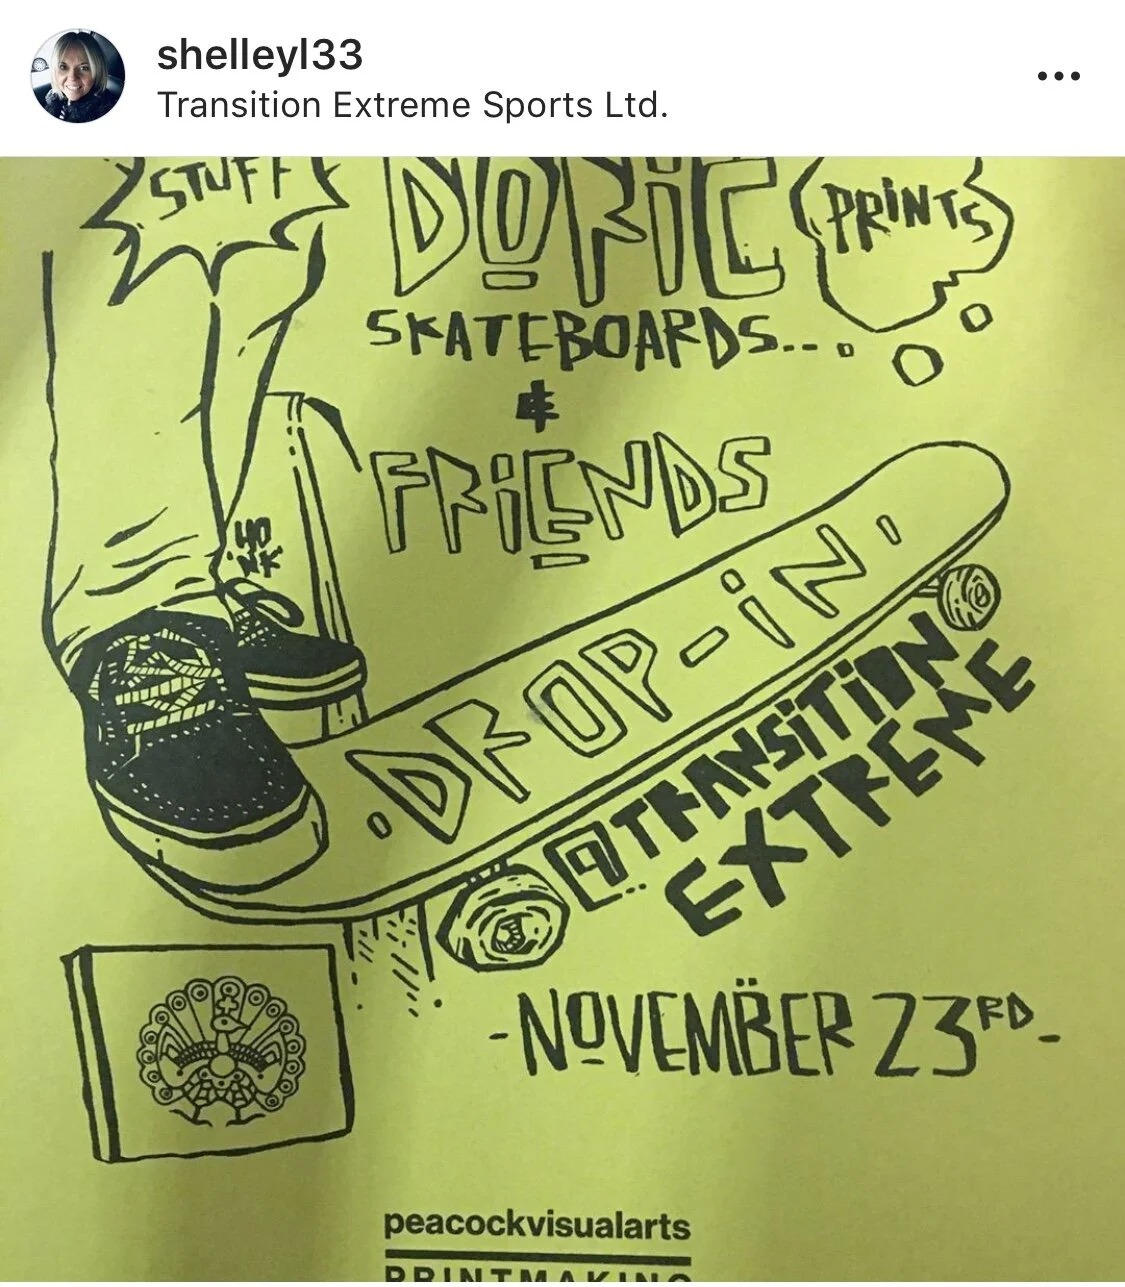 shelleyl33
Transition Extreme Sports Ltd.
STUFF
DORIC
PRINTS
SKATEBOARDS...
&
FRIENDS
HONK
DROP-IN
@TRANSITION
EXTREME
-NOVEMBER 23RD-
peacockvisualarts
PRINTMAKING